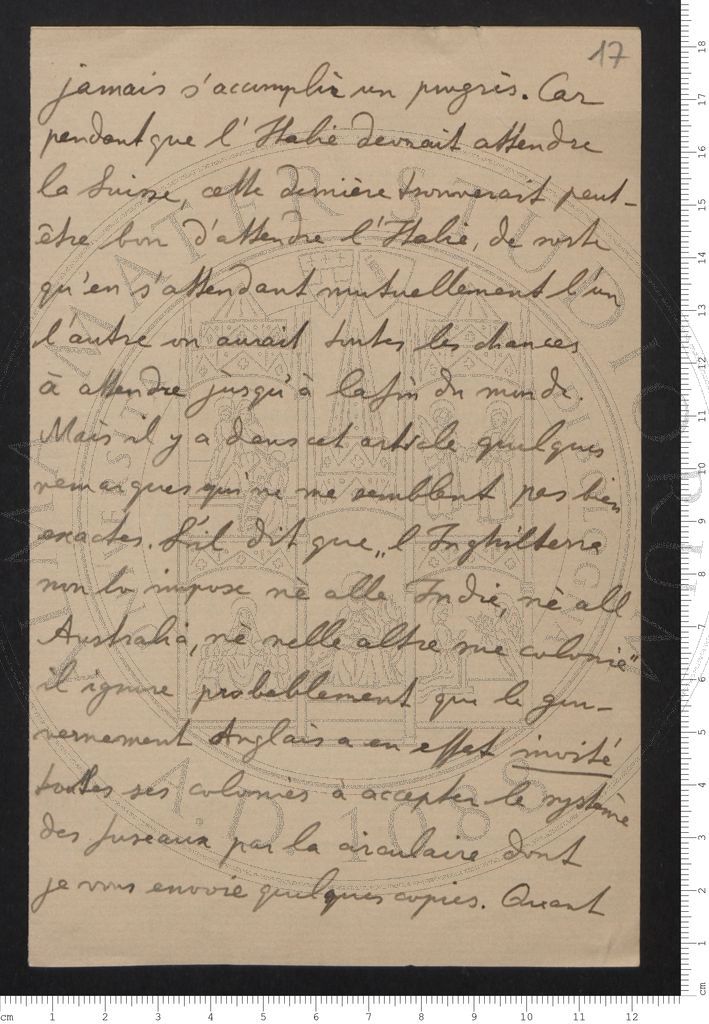 17
jamais s'accomplir un progrès. Car
pendant que l'Italie devrait attendre
la Suisse, cette dernière trouverait peut-
être bon d'attendre l'Italie, de sorte
qu'en s'attendant mutuellement l'un
l'autre on aurait toutes les chances
à attendre jusqu'à la fin du monde.
Mais il y a dans cet article quelques
remarques qui ne me semblent pas bien
exactes. S'il dit que „l'Inghilterra
non lo impose nè alle Indie, nè all
Australia, nè nelle altre sue colonie"
il ignore probablement que le gou-
vernement Anglais a en effet invité
toutes ses colonies à accepter le système
des fuseaux par la circulaire dont
je vous envoie quelques copies. Quant
ALMA MATER STUDIORUM
A.D. 1088